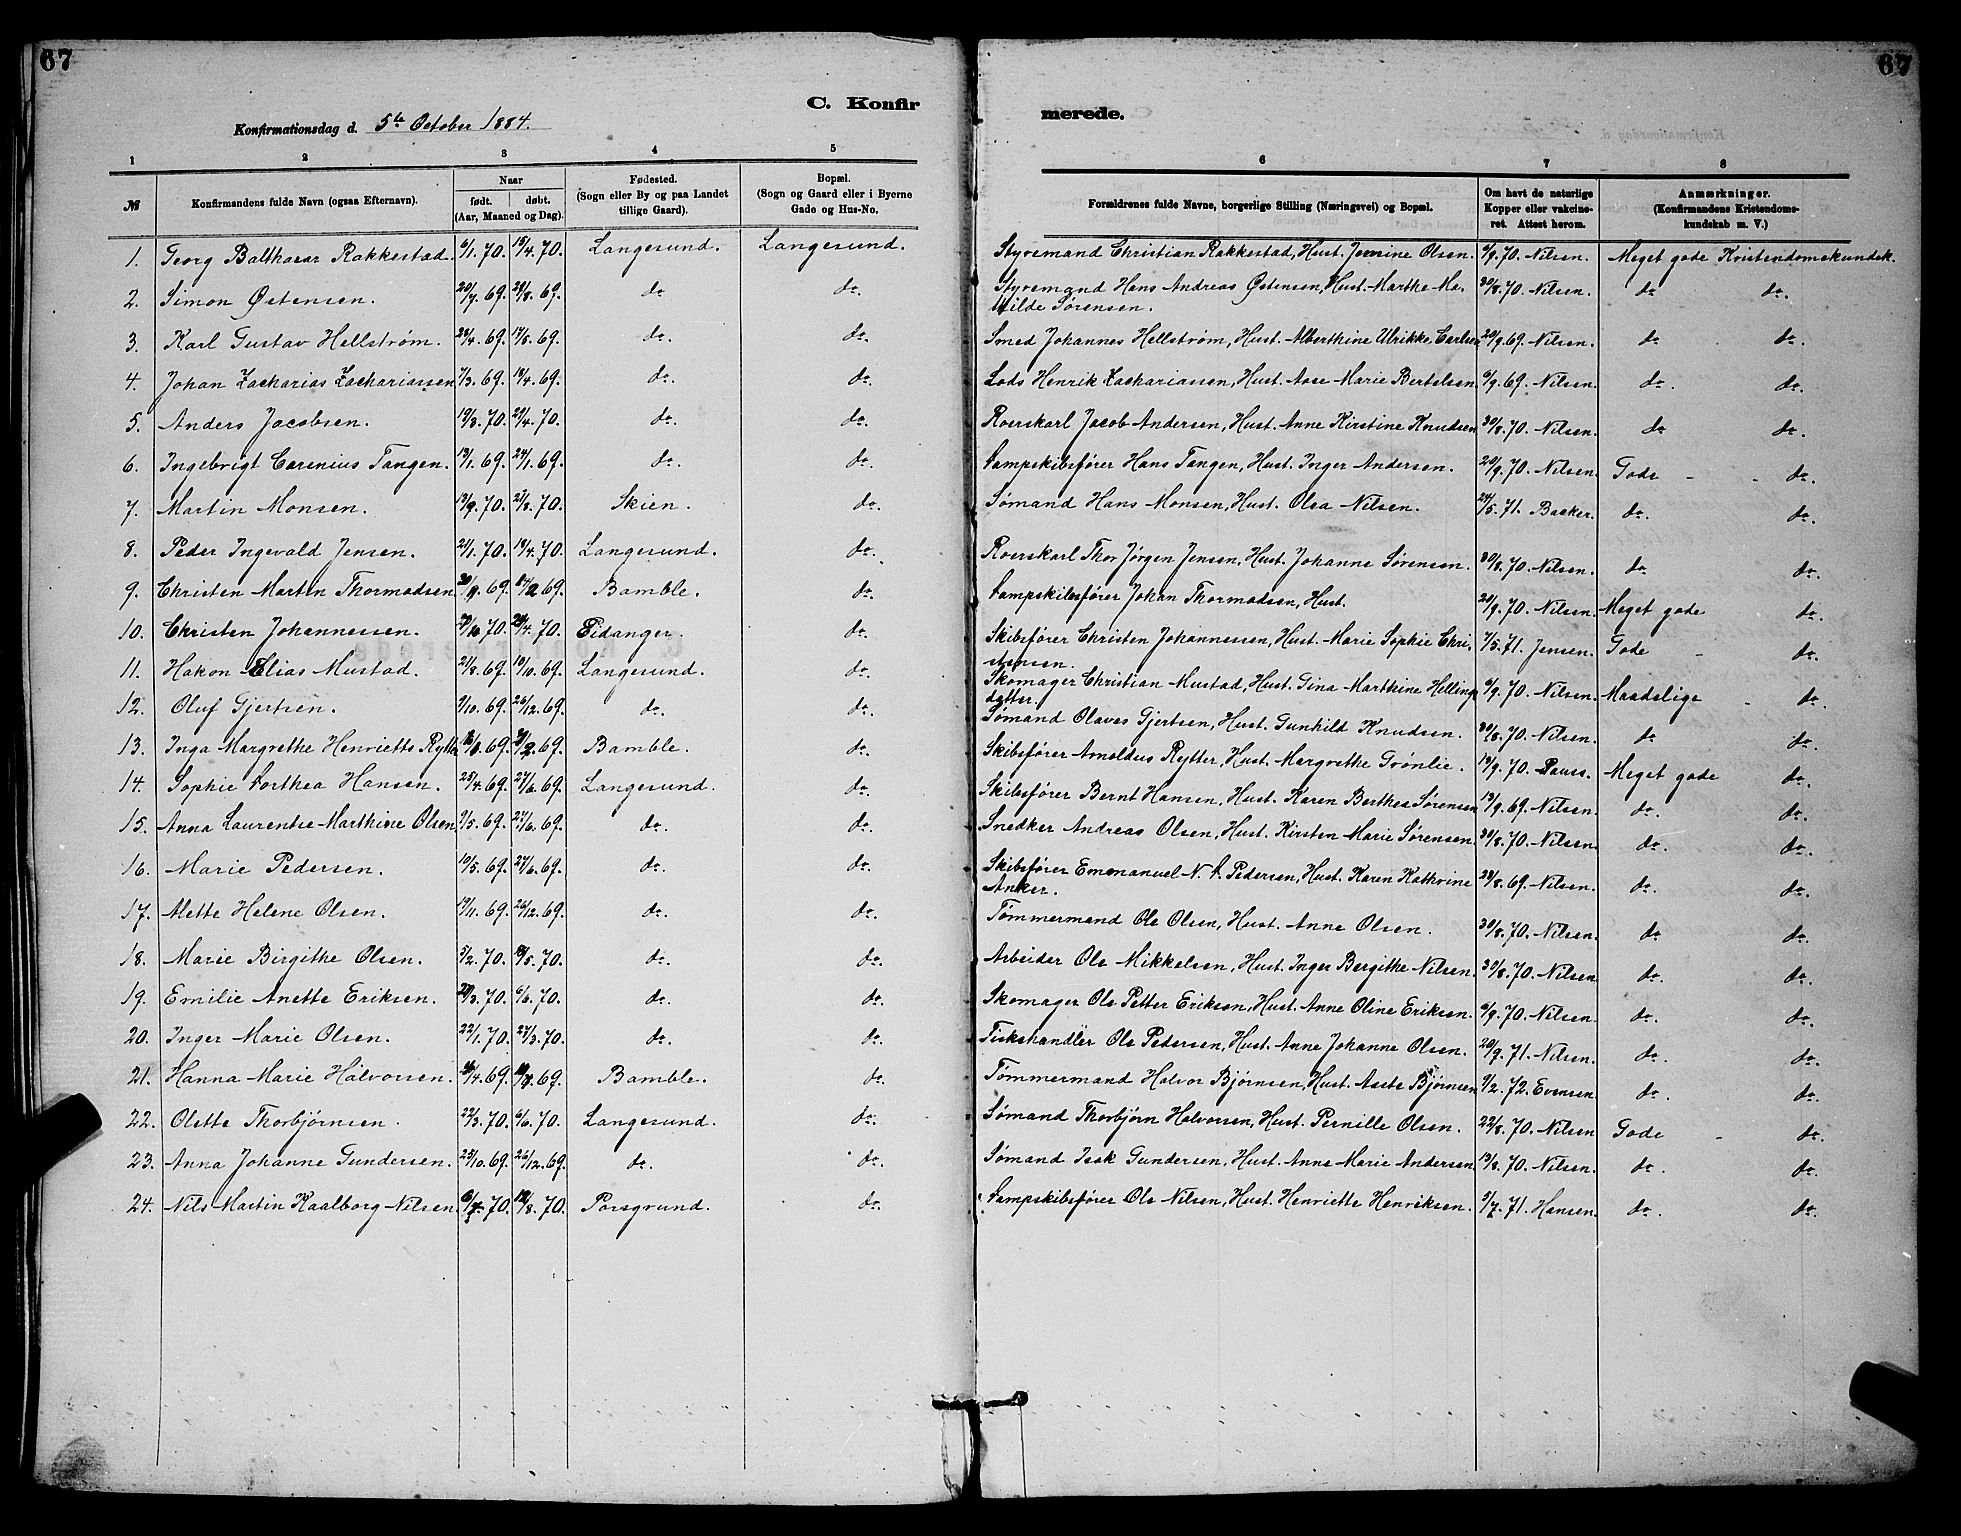 67
67
C. Konfir
merede.
Konfirmationsdag d. 5te October 1884.
1 2 3 4 5 6 7 8
№ Konfirmandens fulde Navn (ogsaa Efternavn). Naar født. døbt. (Aar, Maaned og Dag). Fødested. (Sogn eller By og paa Landet tillige Gaard). Bopæl. (Sogn og Gaard eller i Byerne Gade og Hus-No. Forældrenes fulde Navne, borgerlige Stilling (Næringsvei) og Bopæl. Om havt de naturlige Kopper eller vakcineret. Attest herom. Anmærkninger. (Konfirmandens Kristendomskundskab m. V.)
1. Georg Balthasar Rakkestad. 6/1. 70. 18/4. 70. Langesund. Langesund. Styrmand Christian Rakkestad, Hust. Jensine Olsen. 6/9. 70. Nilsen. Meget gode Kristendomskundsk.
2. Simon Østensen. 20/7. 69. 29/8. 69. do. do. Styrmand Hans Andreas Østensen, Hust. Marthe Mathilde Sørensen. 30/8. 70. Nilsen. do do.
3. Karl Gustav Hellstrøm. 23/4. 69. 17/5. 69. do. do. Smed Johannes Hellstrøm, Hust. Alberthine Ulrikke Carlsen 20/9. 69. Nilsen. do do.
4. Johan Zacharias Zachariassen 7/3. 69. 18/4. 69. do. do. Lods Henrik Zachariassen, Hust. Aase Marie Bertelsen. 6/9. 69. Nilsen. do. do.
5. Anders Jacobsen. 19/3. 70. 29/4. 70. do. do. Roerskarl Jacob Andersen, Hust. Anne Kirstine Knudsen 30/8. 70. Nilsen. do do.
6. Ingebrigt Carenius Tangen. 13/1. 69. 24/1. 69. do. do. Dampskibsfører Hans Tangen, Hust. Inger Andersen. 20/9. 70. Nilsen. Gode - - do.
7. Martin Monsen. 13/9. 70. 21/8. 70. Skien. do. Sømand Hans Monsen, Hust. Olea Nilsen. 24/5. 71. Backer. do. do.
8. Peder Ingevald Jensen. 21/1. 70. 18/4. 70. Langesund. do. Roerskarl Thor Jørgen Jensen, Hust. Johanne Sørensen. 30/8. 70. Nilsen. do do.
9. Christen Martin Thormodsen. 69. 69. Bamble. do. Dampskibsfører Johan Thormodsen, Hust. 20/9. 70. Nilsen. Meget gode do.
10. Christen Johannessen. 70. 70. Eidanger. do. Skibsfører Christen Johannessen, Hust. Marie Sophie Christensen. 7/5. 71. Jensen. Gode - do.
11. Hakon Elias Mustad. 21/8. 69. 10/10. 69. Langesund. do. Skomager Christian Mustad, Hust. Gina Marthine Hellingsdatter. 6/9. 70. Nilsen. Maadelige - do.
12. Oluf Gjertsen. 9/10. 69. 26/12. 69. do. do. Sømand Olaves Gjertsen, Hust. Gunhild Knudsen. 30/8. 70. Nilsen. do do.
13. Inga Margrethe Henriette Rytter 69. 69. Bamble. do. Skibsfører Arnoldus Rytter, Hust. Margrethe Grønlie. 19/9. 70. Pauss. Meget gode do.
14. Sophie Dorthea Hansen. 25/4. 69. 27/6. 69. Langesund. do. Skibsfører Bernt Hansen, Hust. Karen Berthea Sørensen 13/9. 69. Nilsen. do. do.
15. Anna Laurentse Marthine Olsen 9/5. 69. 27/6. 69. do. do. Snedker Andreas Olsen, Hust. Kirsten Marie Sørensen. 30/8. 70. Nilsen. do. do.
16. Marie Pedersen. 10/5. 69. 27/6. 69. do. do. Skibsfører Emmanuel N. Pedersen, Hust. Karen Kathrine Anker. 23/8. 69. Nilsen. do. do.
17. Mette Helene Olsen. 19/11. 69. 26/12. 69. do. do. Tømmermand Ole Olsen, Hust. Anne Olsen. 30/8. 70. Nilsen. do do.
18. Marie Birgithe Olsen. 5/2. 70. 5. 70. do. do. Arbeider Ole Mikkelsen, Hust. Inger Bergithe Nilsen. 30/8. 70. Nilsen. do. do.
19. Emilie Anette Eriksen. 3. 70. 6/6. 70. do. do. Skomager Ole Petter Eriksen, Hust. Anne Oline Eriksen. 6/9. 70. Nilsen. do. do.
20. Inger Marie Olsen. 22/1. 70. 27/3. 70. do. do. Fiskehandler Ole Pedersen, Hust. Anne Johanne Olsen. 20/9. 71. Nilsen. do. do.
21. Hanna Marie Halvorsen. 4. 69. 69. Bamble. do. Tømmermand Halvor Bjørnsen, Hust. Aaste Bjørnsen 9/2. 72. Evensen do. do.
22. Olette Thorbjørnsen. 22/3. 70. 6/6. 70. Langesund. do. Sømand Thorbjørn Halvorsen, Hust. Pernille Olsen. 22/8. 70. Nilsen Gode - do.
23. Anna Johanne Gundersen. 25/10. 69. 26/12. 69. do. do. Sømand Isak Gundersen, Hust. Anne Marie Andersen 13/8. 70. Nilsen. do. do.
24. Nils Martin Kaalborg Nilsen. 70. 8. 70. Porsgrund. do. Dampskibsfører Ole Nilsen, Hust. Henriette Henriksen. 5/7. 71. Hansen. do. do.